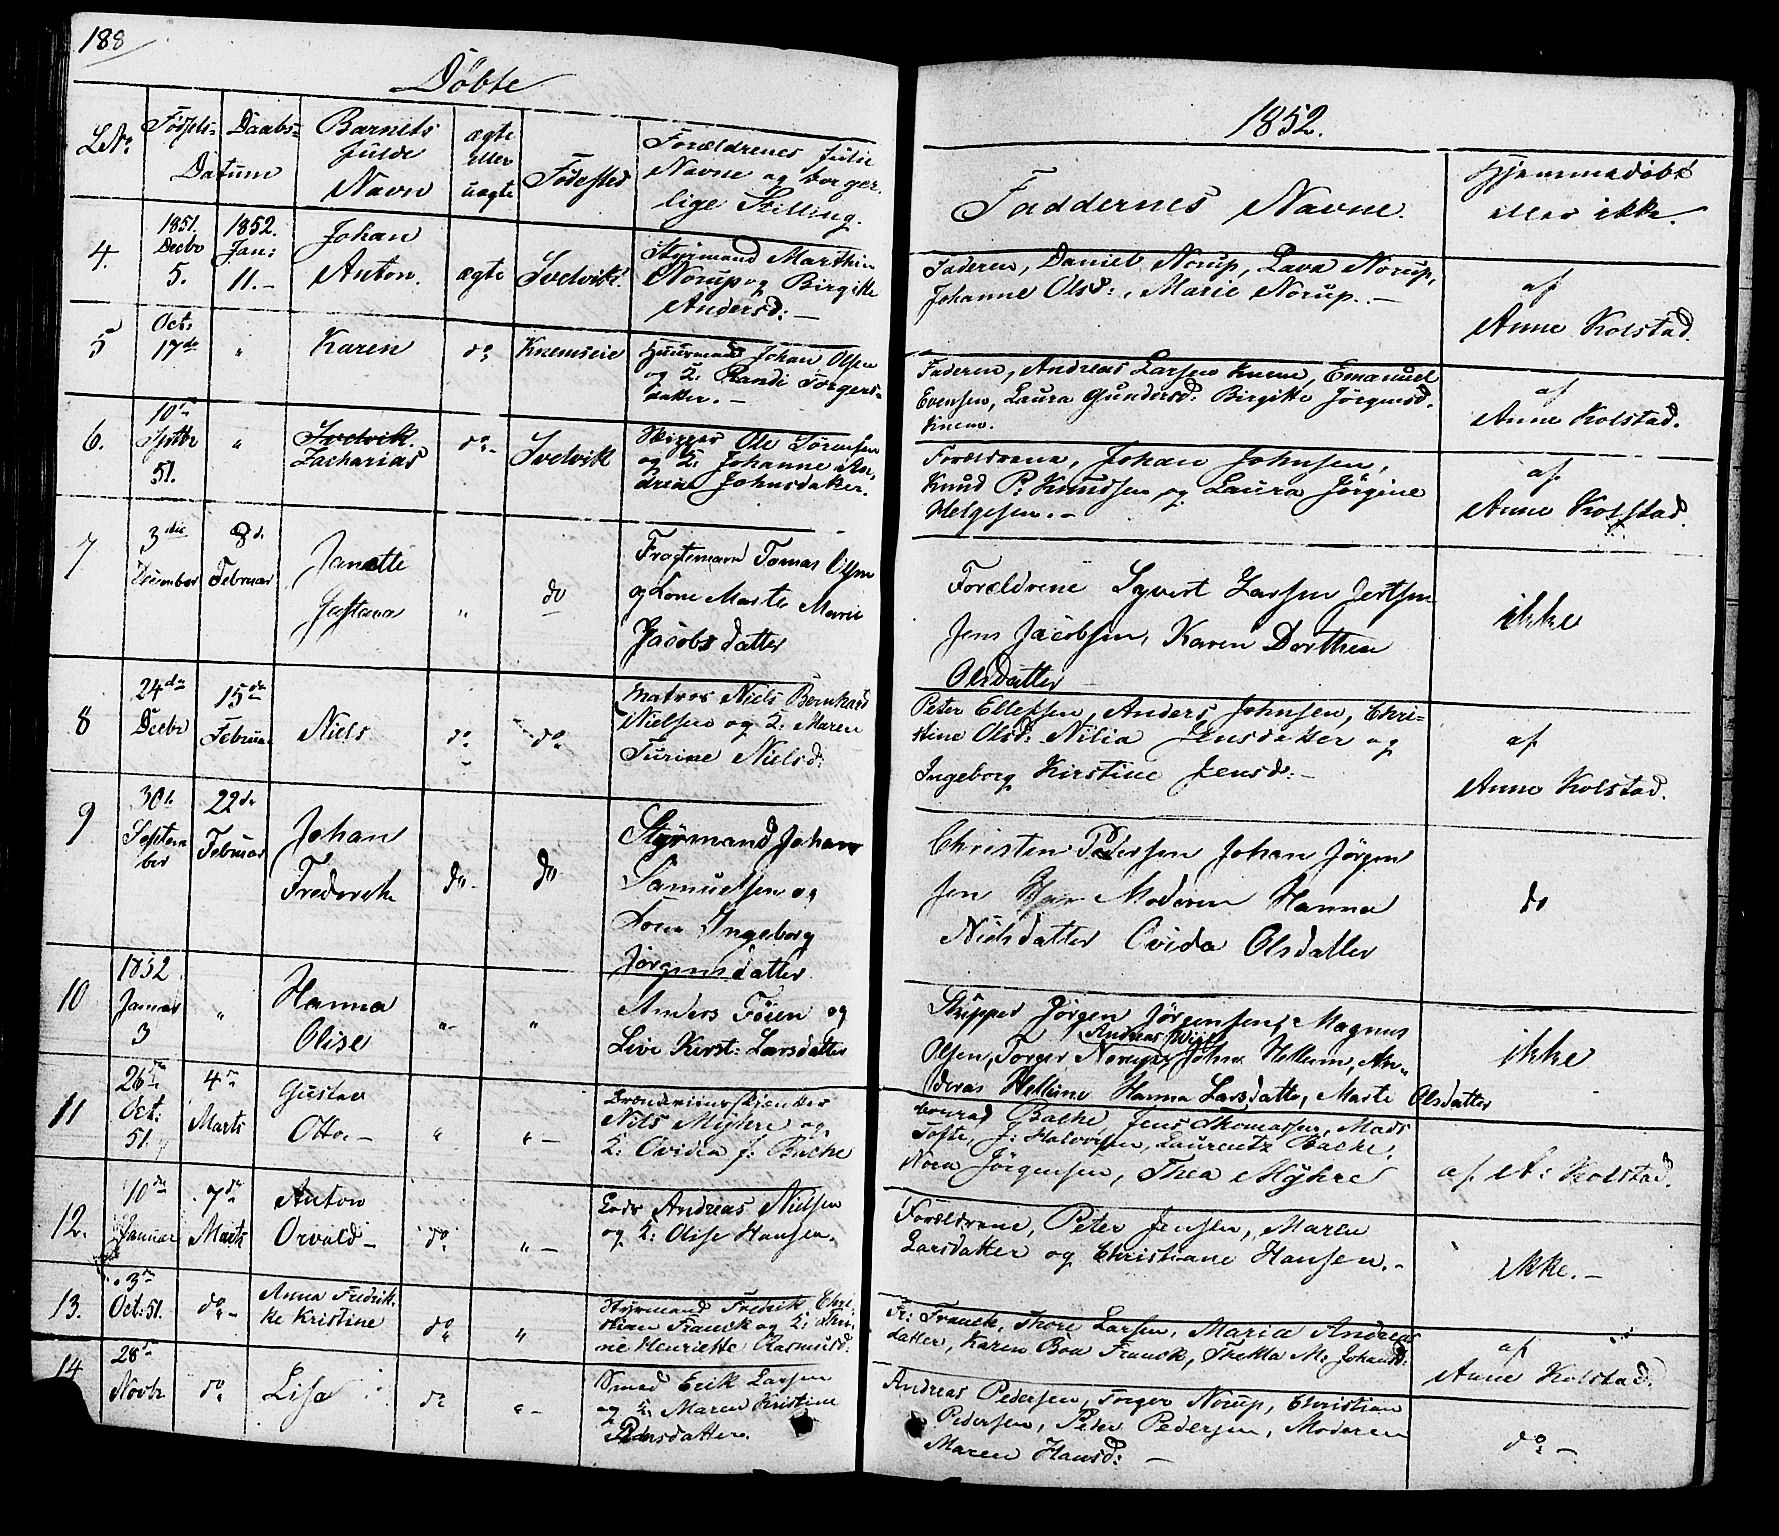 188
Døbte
1852.
L.No. Fødsels- Daabs- Datum
Barnets fulde Navn
ægte eller uægte
Fødested
Forældrenes fulde Navne og borgerlige Stilling.
Faddernes Navne.
Hjemmedøbt eller ikke.
4. 1851. Decbr 5. 1852. Jan: 11.- Johan Anton. ægte Svelvik.
Styrmand Marthin
Norup og Birgitte
Andersd:-
Faderen, Daniel Norup, Lava Norup,
Johanne Olsd:, Marie Norup.-
af
Anne Kolstad.
5 Oct. 17de " Karen do Knemseie
Huusmand Johan Olsen
og K: Randi Torgers-
datter.-
Faderen, Andreas Larsen Knem, Emanuel
Evensen, Laura Gundersd: Birgitte Jörgensd.
Knem.
af
Anne Kolstad.
6. 10de Septbr 51. " Svelvik. Zacharias do- Svelvik
Skipper Ole Sörensen
og K: Johanne An-
drea Johnsdatter.
Forældrene, Johan Johnsen,
Knud P: Knudsen og Laura Jörgine
Helgesen.-
af
Anne Kolstad.
7 3die December 8d. Februar Janette Justana " do
Fragtemand Tomas Olsen
og Kone Marte Marie
Jacobsdatter
Forældrene Syvert Larsen Jertsen
Jens Jacobsen, Karen Dorthea
Olsdatter
ikke
8 24de Decbr 15de Februar Niels do do
Matros Niels Bernhard
Nielsen og K: Maren
Turine Nielsd:
Peter Ellefsen, Anders Johnsen, Chri-
stine Olsd: Nilia Jensdatter og
Ingeborg Kirstine Jensd:-
af
Anne Kolstad.
9 30te September 22de Februar Johan Frederik do- do
Styrmand Johan
Samuelsen og
Kone Ingeborg
Jørgensdatter
Christen Pedersen Johan Jørgen
sen Moderen Hanna
Nielsdatter Ovida Olsdatter
do
10 1852 Januar 3 " Hanna Olise "- "
Anders Föien og
Live Kirst: Larsdatter
Skipper Jørgen Jørgensen, Magnus
Andreas Wiig
Olsen, Torger Norup, John Hellum, An-
dreas Hellum Hanna Larsdatter, Marte Olsdatter
ikke
11 26de Oct: 51. 4de Marts Gustav Otto.- " "-
Brændeviinsskjenker
Nils Myhre og
K: Ovidia f: Bache
Conrad Bache, Jens Thomassen, Mads
Tofte, J: Halvorsen, Laurentz Bache,
Nora Jörgensen, Thea Myhre
af A: Kolstad.
12. 10de Januar 7de Marts Anton Orvald- do. "-
Lods Andreas Nielsen
og K: Olise Hansen.
Forældrene, Peter Jensen, Maren
Larsdatter og Christiane Hansen.-
ikke.-
13. 3de Oct: 51. do- Anna Fredrik-
ke Kristine do "
Styrmand Fredrik Chri-
stian Franck og K: Thri-
ne Henriette Rasmusd.
Fr: Franck, Thore Larsen, Maria Andreas
datter, Karen Boa Franck, Thekla M: Johansd:
af
Anne Kolstad.
14 28de Novbr do Lisa do "-
Smed Erik Larsen
og K: Maren Kristine
Pedersdatter.
Andreas Pedersen, Torger Norup, Christian
Pedersen, Peter Pedersen, Moderen
Maren Hansd:-
do-